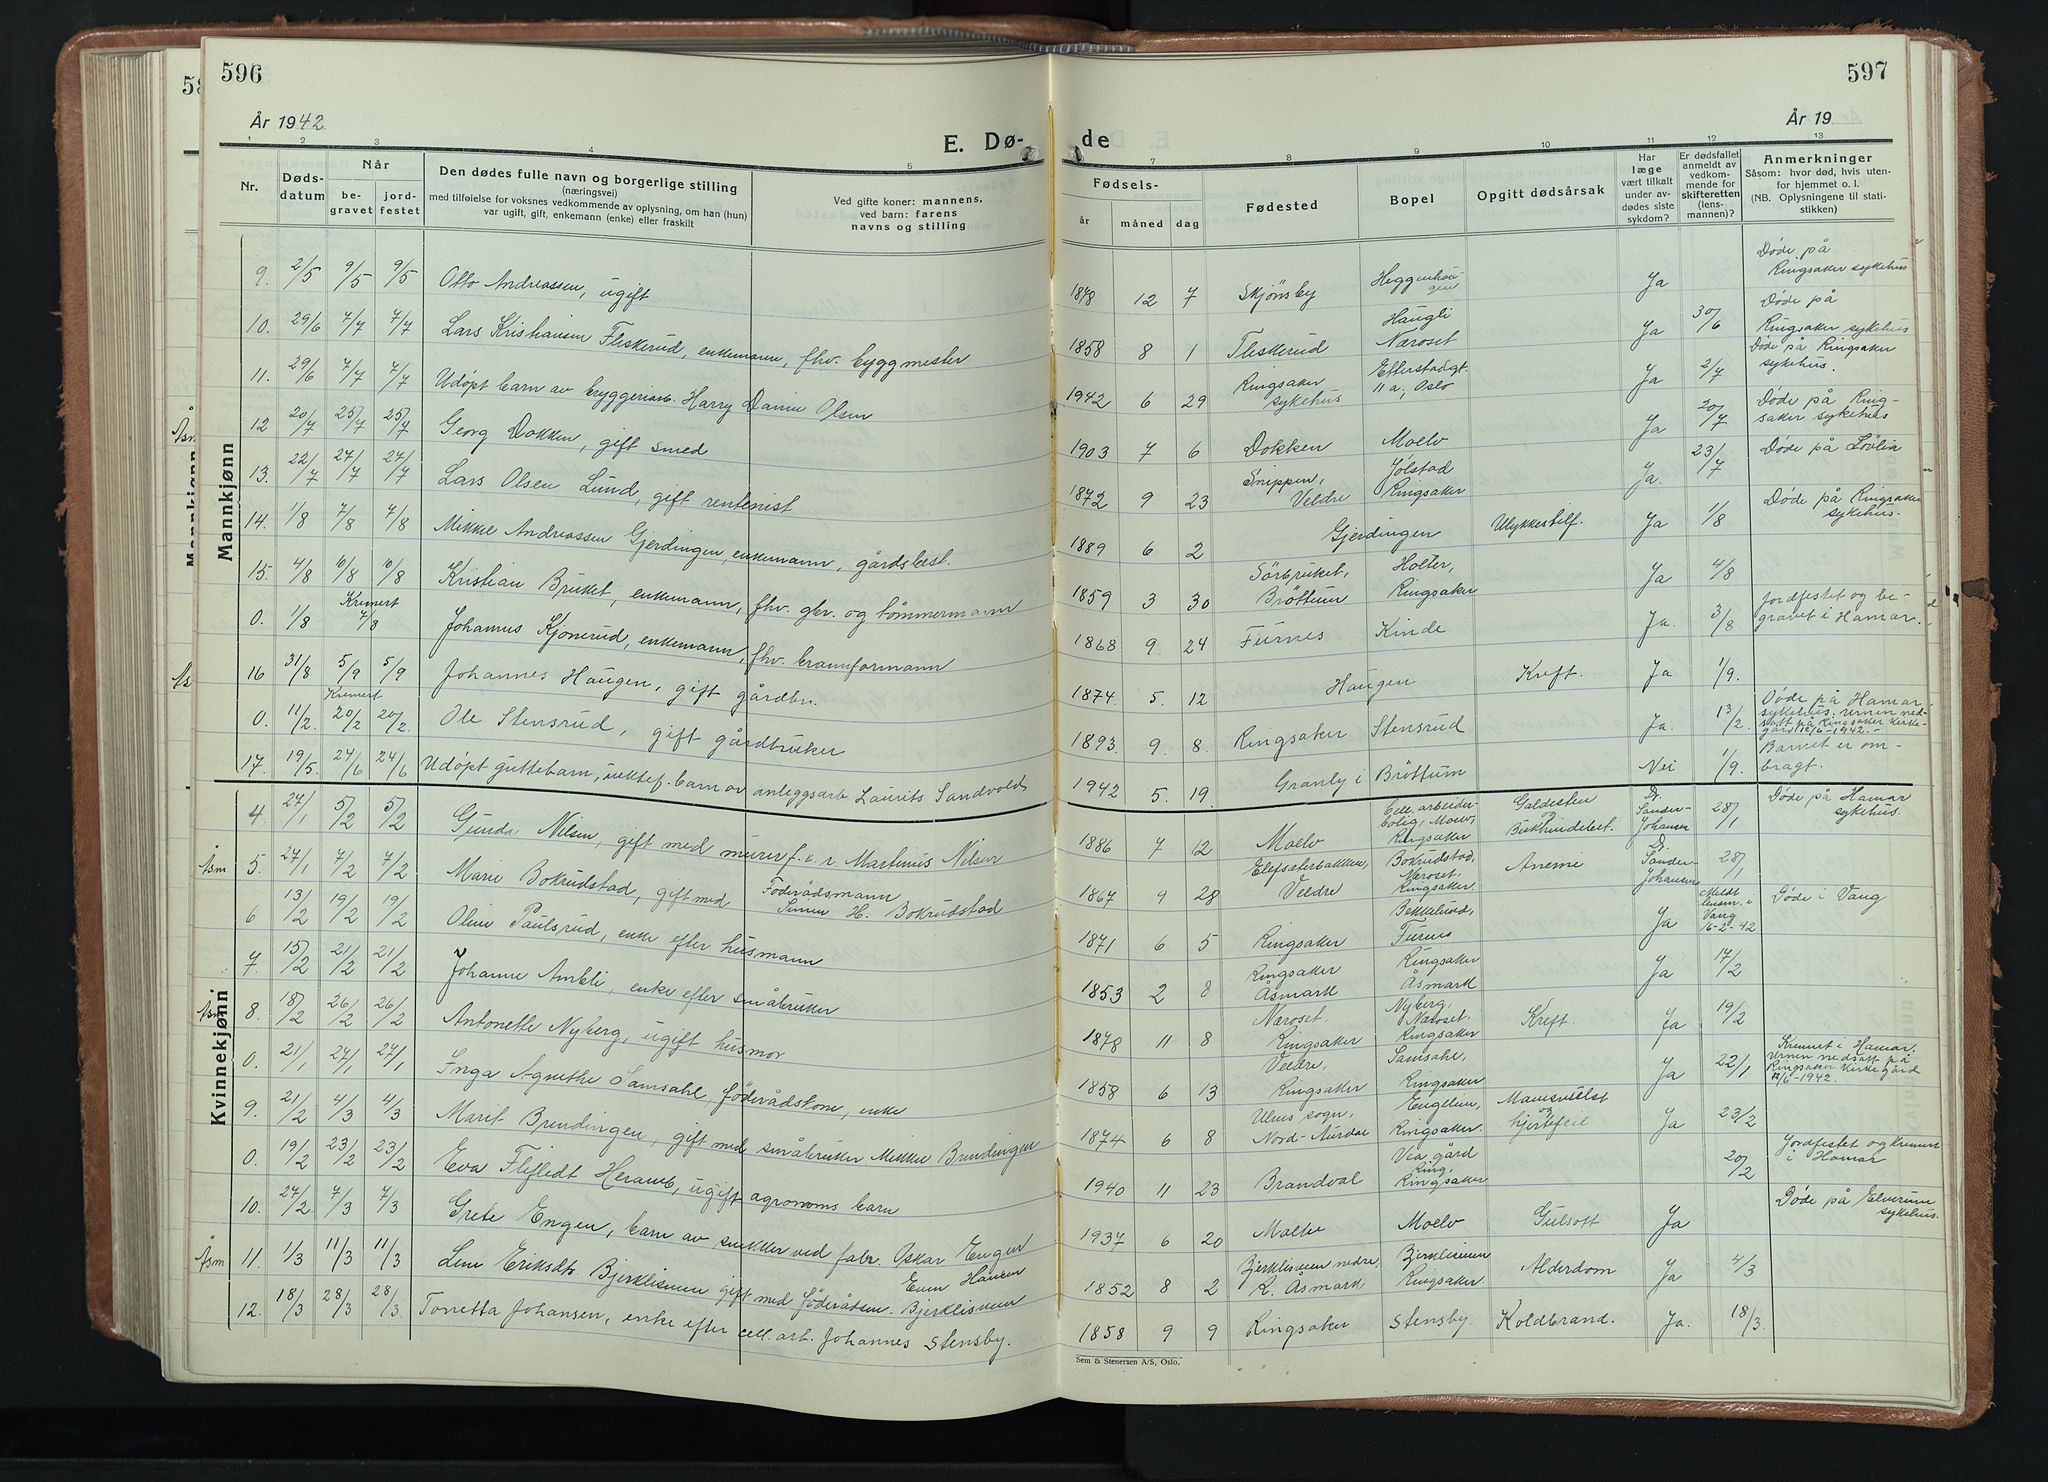 596
597
År 1942
År 19
E. Dø-
de
1 2 3 4 5 7 8 9 10 11 12 13
Nr.
Døds-
datum
Når
be-
gravet
jord-
festet
Den dødes fulle navn og borgerlige stilling
(næringsvei)
med tilføielse for voksnes vedkommende av oplysning, om han (hun)
var ugift, gift, enkemann (enke) eller fraskilt
Ved gifte koner: mannens,
ved barn: farens
navns og stilling
Fødsels-
år måned dag
Fødested
Bopel
Opgitt dødsårsak
Har
læge
vært tilkalt
under av-
dødes siste
sykdom?
Er dødsfallet
anmeldt av
vedkom-
mende for
skifteretten
(lens-
mannen)?
Anmerkninger
Såsom: hvor død, hvis uten-
for hjemmet o. l.
(NB. Oplysningene til stati-
stikken)
Mannkjønn
9. 2/5 9/5 9/5 Otto Andreassen, ugift 1878 12 7 Skjønsby Heggenhau-
gen Ja Døde på
Ringsaker sykehus
10. 29/6 7/7 7/7 Lars Kristiansen Fliskerud, enkemann, fhv. byggmester 1858 8 1 Fliskerud Haugli
Næroset Ja 30/6 Døde på
Ringsaker sykehus
11. 29/6 7/7 7/7 Udøpt barn av bryggeriarb. Harry Daniu Olsen 1942 6 29 Ringsaker
sykehus Efterstadgt.
11 a, Oslo Ja 2/7 Døde på Ringsaker
sykehus.
12 20/7 25/7 25/7 Georg Dokken, gift smed 1903 7 6 Dokken Moelv Ja 20/7 Døde på Ring-
saker sykehus
13. 22/7 27/7 27/7 Lars Olsen Lund, gift rentenist 1872 9 23 Snippen,
Veldre Jølstad
Ringsaker Ja. 23/7 Døde på Løvlia
14. 1/8 7/8 7/8 Mikke Andreassen Gjerdingen, enkemann, gårdsbest. 1889 6 2 Gjerdingen Ulykkestilf. Ja 1/8 Døde på Ringsaker
sykehus.
15. 4/8 10/8 10/8 Kristian Bruket, enkemann, fhv. gbr. og tømmermann 1859 3 30 Sørbruket,
Brøttum Holter,
Ringsaker Ja 4/8
0. 1/8 Kremert
7/8 Johannes Kjønerud, enkemann, fhv. brannformann 1868 9. 24 Furnes Kinde Ja. 3/8 Jordfestet og be-
gravet i Hamar.
16 31/8 5/9 5/9 Johannes Haugen, gift gårdbr. 1874 5. 12 Haugen Kreft. Ja 1/9.
0. 11/2. Kremert
20/2 20/2. Ole Stensrud, gift gårdbruker 1893. 9. 8. Ringsaker Stensrud Ja. 13/2. Døde på Hamar
sykehus. Urnen ned-
satt på Ringsaker kirke-
gård 12/6-1942.-
17. 19/5. 24/6 24/6 Udøpt guttebarn, uektef. barn av anleggsarb. Laurits Sandvold 1942 5. 19. Granly i Brøttum Nei 1/9. Barnet er om-
bragt.
Kvinnekjønn
4. 27/1 5/2 5/2 Gunda Nilsen, gift med murerf. e. r. Martinus Nilsen 1886 7 12 Moelv Cell. arbeider-
bolig, Moelv,
Ringsaker Galdesten
og
Bukhindebet. Dr.
Sander-
Johansen 28/1 Døde på Hamar
sykehus.
Åsm 5. 27/1 7/2 7/2 Marie Bokrudstad, gift med Føderådsmann
Simen H. Bokrudstad 1867 9 28 Elefsæterbakken,
Veldre Bokrudstad,
Næroset,
Ringsaker Anemi Dr.
Sander-
Johansen 28/1
6 13/2 19/2 19/2 Oline Paulsrud, enke efter husmann 1871 6 5 Ringsaker Bekkelund,
Furnes Ja Meldt
lensm. i
Vang
16-2-42 Døde i Vang
7 15/2 21/2 21/2 Johanne Ambli, enke efter småbruker 1853 2 8 Ringsaker
Åsmark Ringsaker
Åsmark Ja 17/2
Åsm 8. 18/2 26/2 26/2 Antonette Nyberg, ugift husmor 1878 11 8 Næroset,
Ringsaker Nyberg,
Næroset,
Ringsaker Kreft. Ja 19/2
0. 21/1 27/1 27/1 Inga Agnethe Samsahl, føderådskone, enke 1858 6 13 Veldre,
Ringsaker Samsahl,
Ringsaker Ja 22/1 Kremert i Hamar.
Urnen nedsatt på
Ringsaker kirkegård
12/6-1942.
9. 21/2 4/3 4/3 Marit Brendingen, gift med småbruker Mikkel Brendingen 1874 6 8 Ulnes sogn,
Nord-Aurdal Engelien,
Ringsaker. Mavesvulst
og
hjertefeil Ja 23/2
0. 19/2 23/2 23/2 Eva Flifledt Heramb, ugift agronoms barn 1940 11 23 Brandval Vea gård
Ring,
Ringsaker 20/2 Jordfestet og kremert
i Hamar
10. 27/2 7/3 7/3 Grete Engen, barn av snekker ved fabr. Oskar Engen 1937 6 20 Moelv Moelv Gulsott Ja Døde på Elverum
sykehus.
Åsm 11. 1/3 11/3 11/3 Lene Eriksdtr. Bjerklisveen gift med føderådsm. Even Hansen
Bjerklisveen 1852 8 2 Bjerklisveen nedre,
R. Åsmark Bjerklisveen
Ringsaker Alderdom Ja 4/3
12. 18/3 28/3 28/3 Tonetta Johansen, enke efter cell. arb. Johannes Stensby. 1858 9 9 Ringsaker Stensby. Koldbrand. Ja. 18/3
Sem & Stenersen A/S, Oslo.